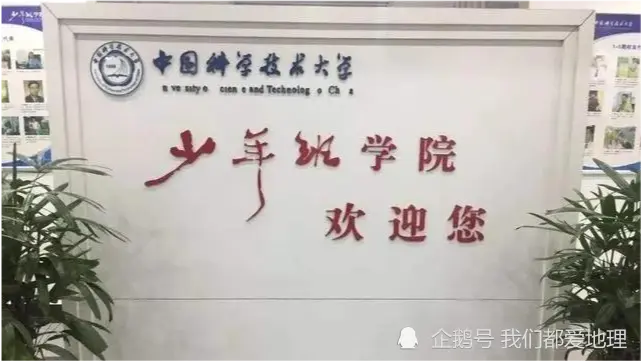 中国科学技术大学
n ve sity o cien e and Technolog o Ch a
少年班学院
欢迎您
企鹅号 我们都爱地理